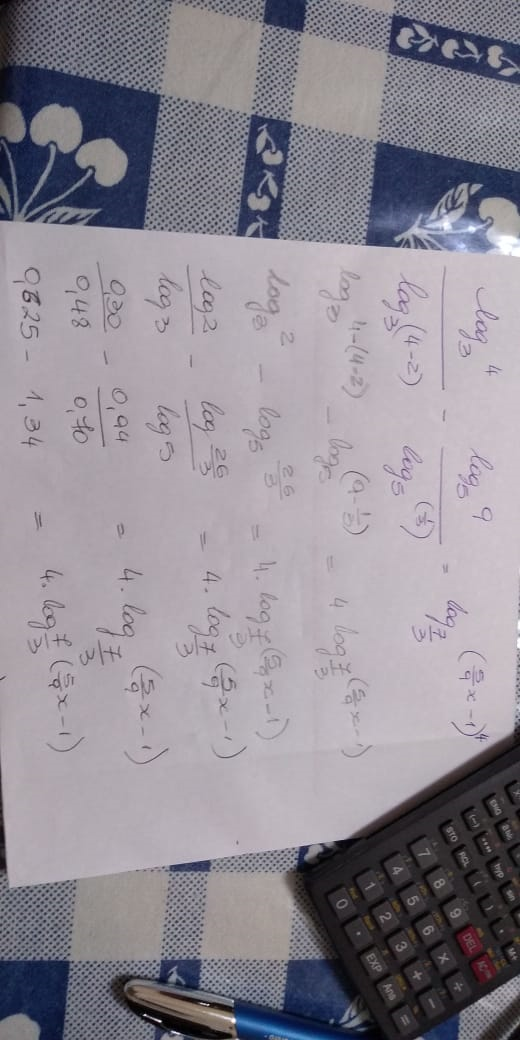 log₃ 4 / log₃ (4-2) - log₅ 9 / log₅ (1/3) = log_{7/3} (5/9 x - 1)⁴
log₃ 4-(4-2) - log₅ (9 - 1/3) = 4 log_{7/3} (5/9 x - 1)
log₃ 2 - log₅ 26/3 = 4 · log_{7/3} (5/9 x - 1)
log 2 / log 3 - log 26/3 / log 5 = 4 · log_{7/3} (5/9 x - 1)
0,30 / 0,48 - 0,94 / 0,70 = 4 · log_{7/3} (5/9 x - 1)
0,625 - 1,34 = 4 · log_{7/3} (5/9 x - 1)
ENG
(-) °'" hyp sin
STO RCL ( ) , M+
7 8 9 DEL AC
4 5 6 × ÷
1 2 3 + −
0 . EXP Ans =